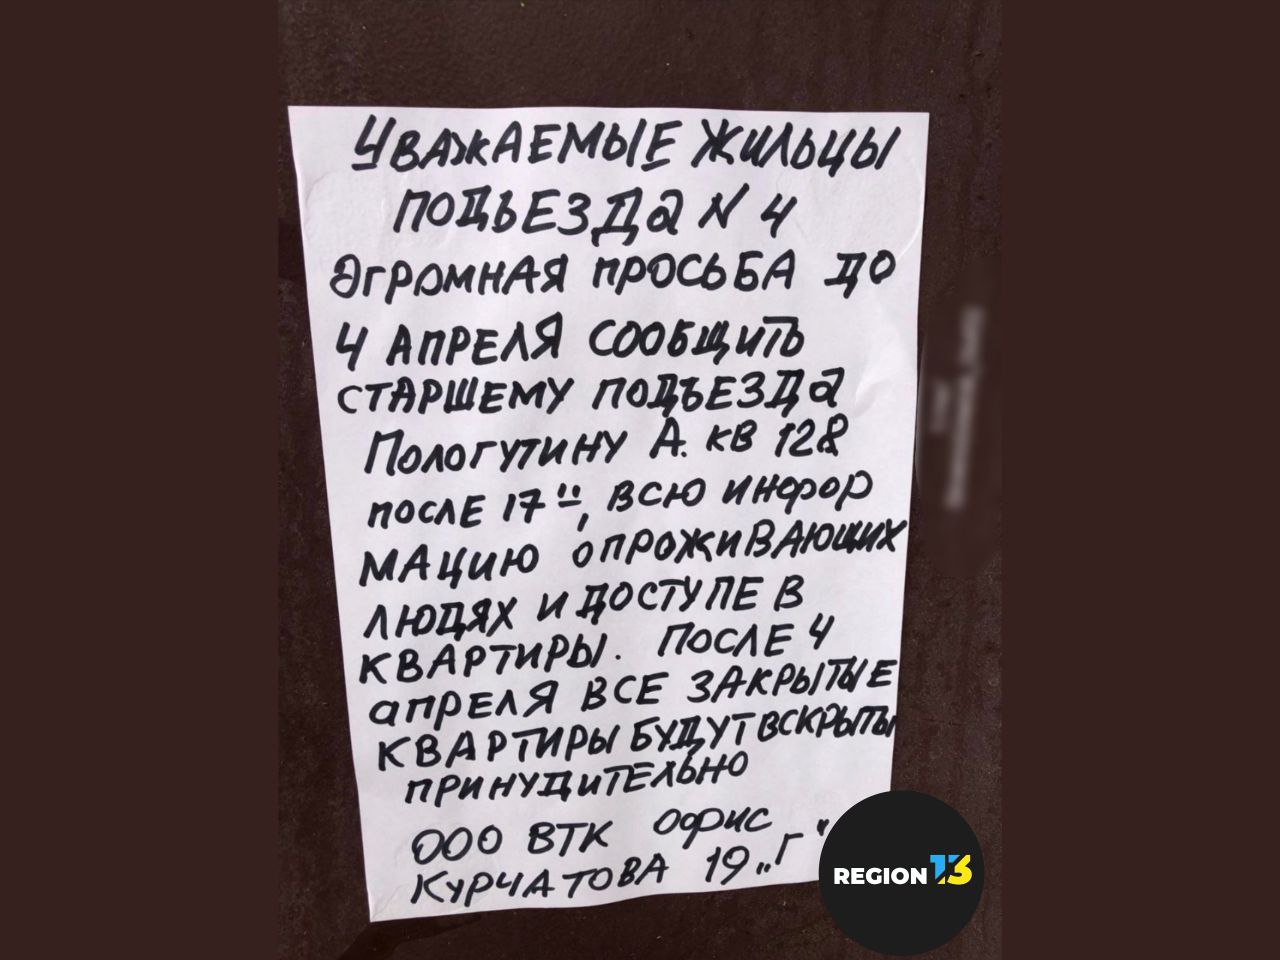 УВАЖАЕМЫЕ ЖИЛЬЦЫ
ПОДЬЕЗДА N 4
ОГРОМНАЯ ПРОСЬБА ДО
4 АПРЕЛЯ СООБЩИТЬ
СТАРШЕМУ ПОДЪЕЗДА
ПОЛОГУТИНУ А. КВ 128
ПОСЛЕ 17 00, ВСЮ ИНФОР
МАЦИЮ О ПРОЖИВАЮЩИХ
ЛЮДЯХ И ДОСТУПЕ В
КВАРТИРЫ. ПОСЛЕ 4
АПРЕЛЯ ВСЕ ЗАКРЫТЫЕ
КВАРТИРЫ БУДУТ ВСКРЫТЫ
ПРИНУДИТЕЛЬНО
ООО ВТК ОФИС
КУРЧАТОВА 19 „Г"
REGION 13